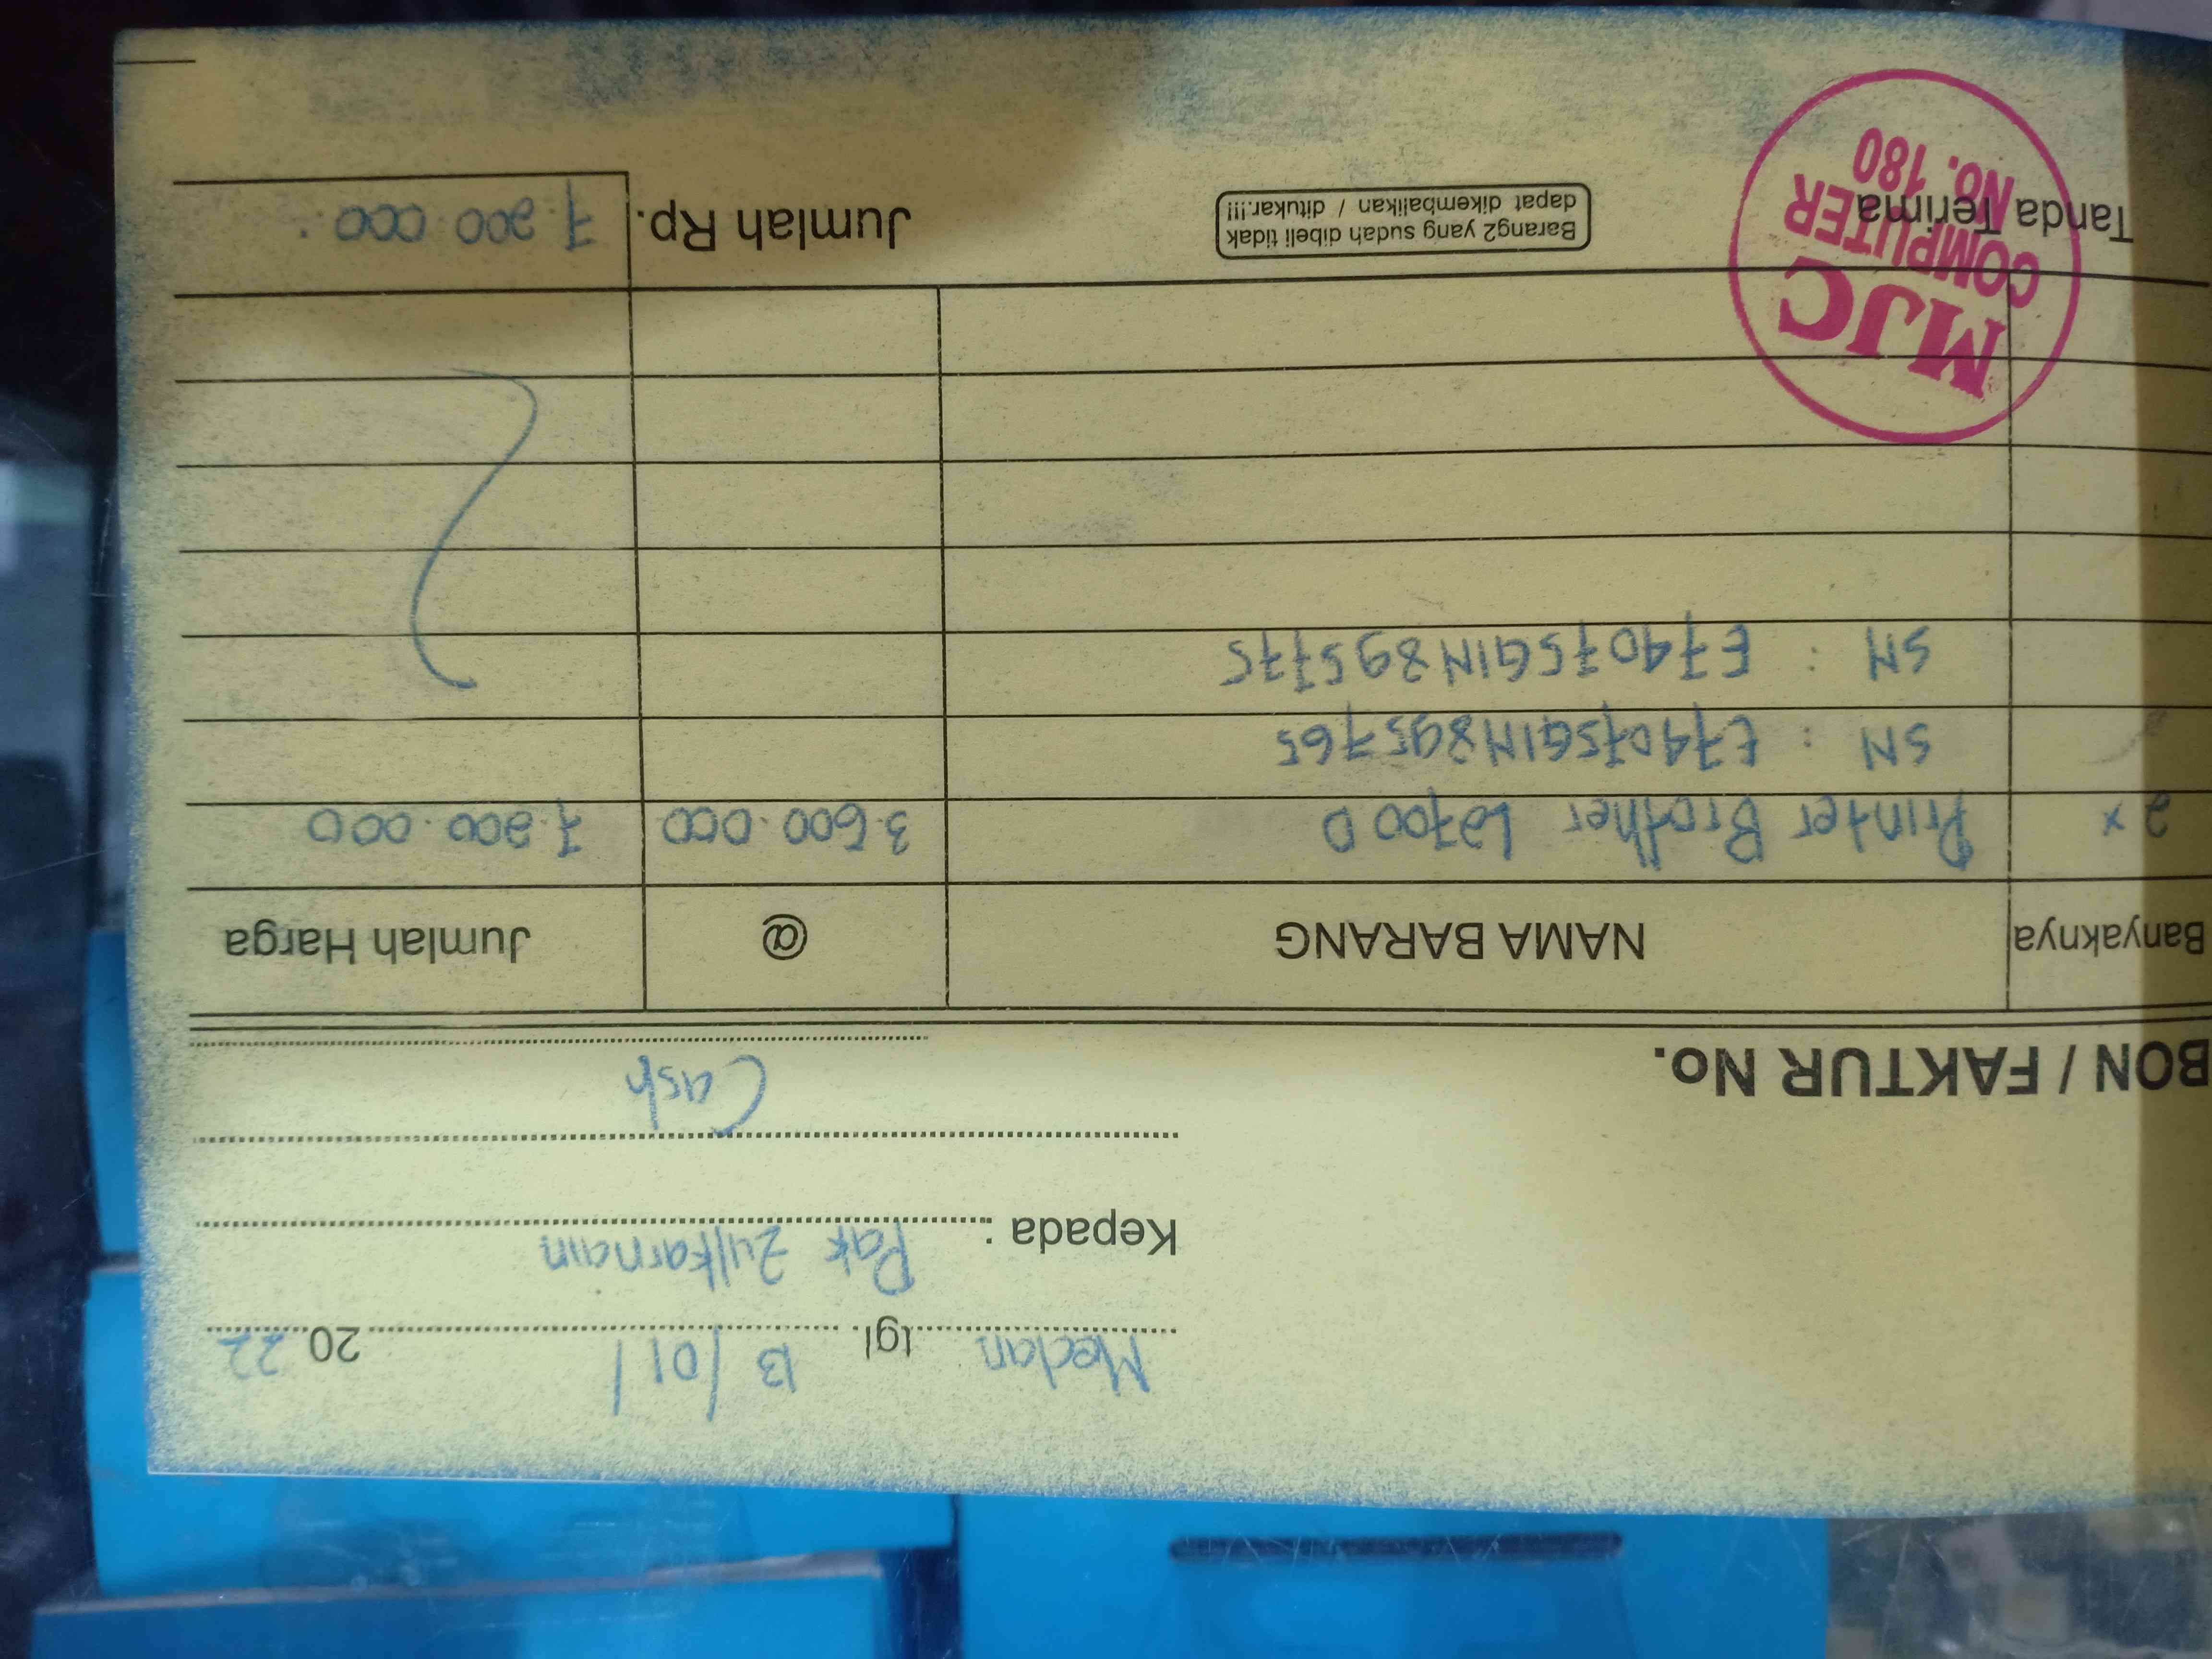 Medan tgl. 13/01/ 2022
Kepada : Pak Zulkarnain
Cash
BON / FAKTUR No.
Banyaknya NAMA BARANG @ Jumlah Harga
2 x Printer Brother L2700 D 3.600.000 7.200.000
SN : E74075G1N895765
SN : E74075G1N895775
Tanda Terima
Barang2 yang sudah dibeli tidak
dapat dikembalikan / ditukar.!!!
Jumlah Rp. 7.200.000
MJC
COMPUTER
No. 180